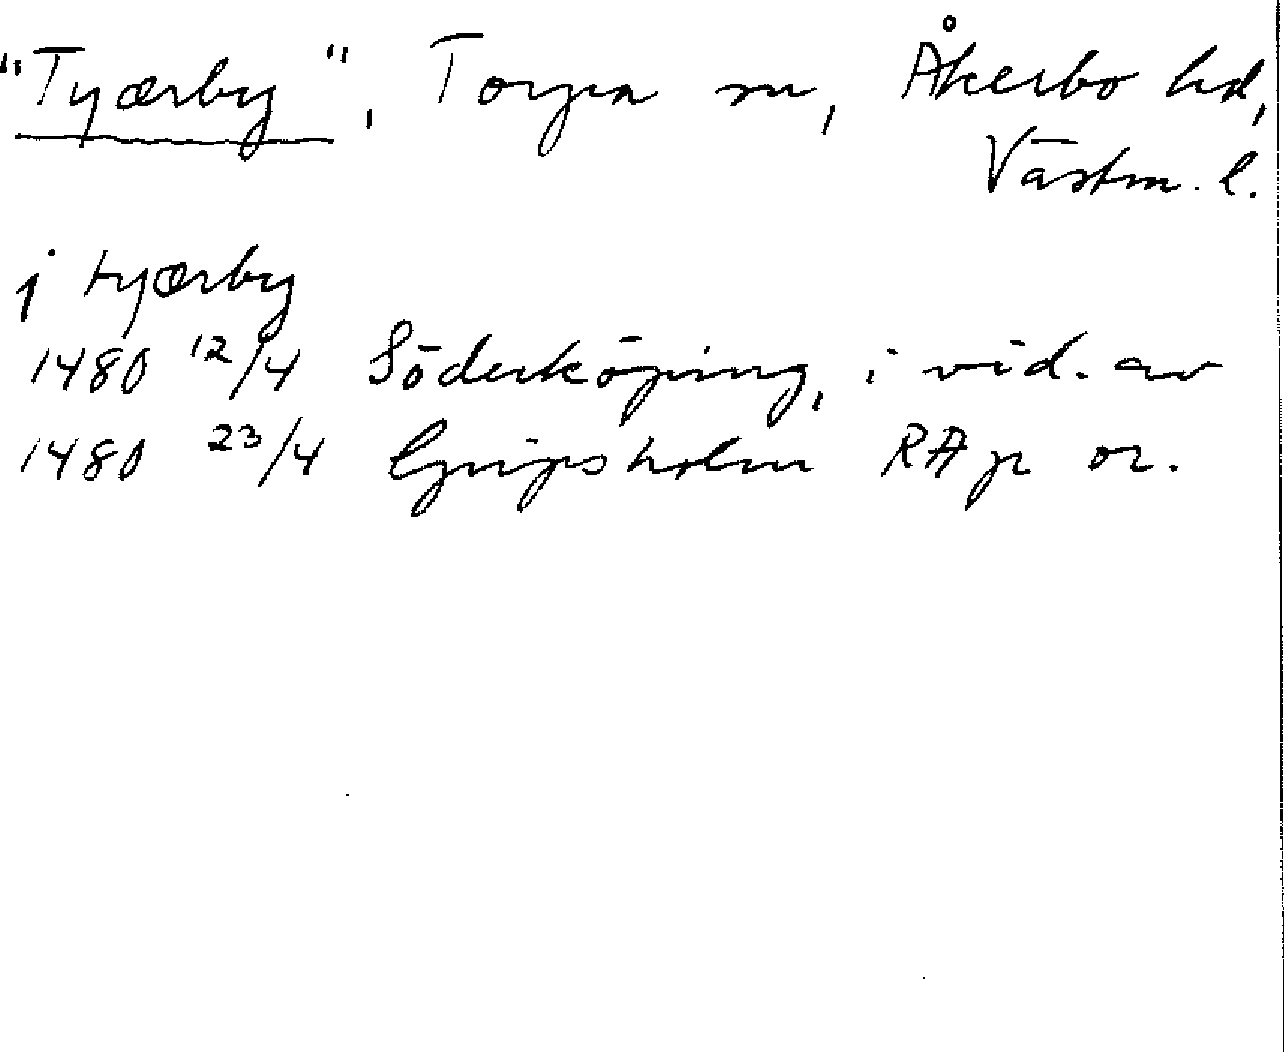 "Tyærby", Torpa sn, Åkerbo hd,
Västm. l.
j tyærby
1480 12/4 Söderköping, i vid. av
1480 23/4 Gripsholm RAp or.